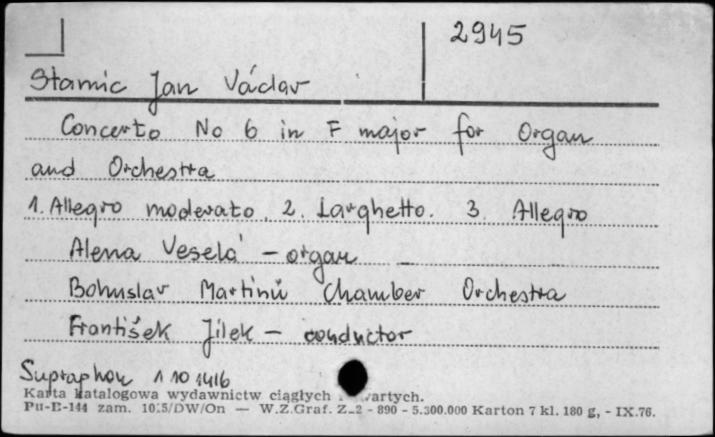 2945
Stamic Jan Václav
Concerto No 6 in F major for Organ
and Orchestra
1. Allegro moderato. 2. Larghetto. 3. Allegro
Alena Veselá - organ
Bohuslav Martinů Chamber Orchestra
František Jílek - conductor
Supraphon 1 10 1416
Karta katalogowa wydawnictw ciągłych
Pu-B-144 zam. 1015/DW/On — W.Z.Graf. Z-2 - 890 - 5.300.000 Karton 7 kl. 180 g, - IX.76.